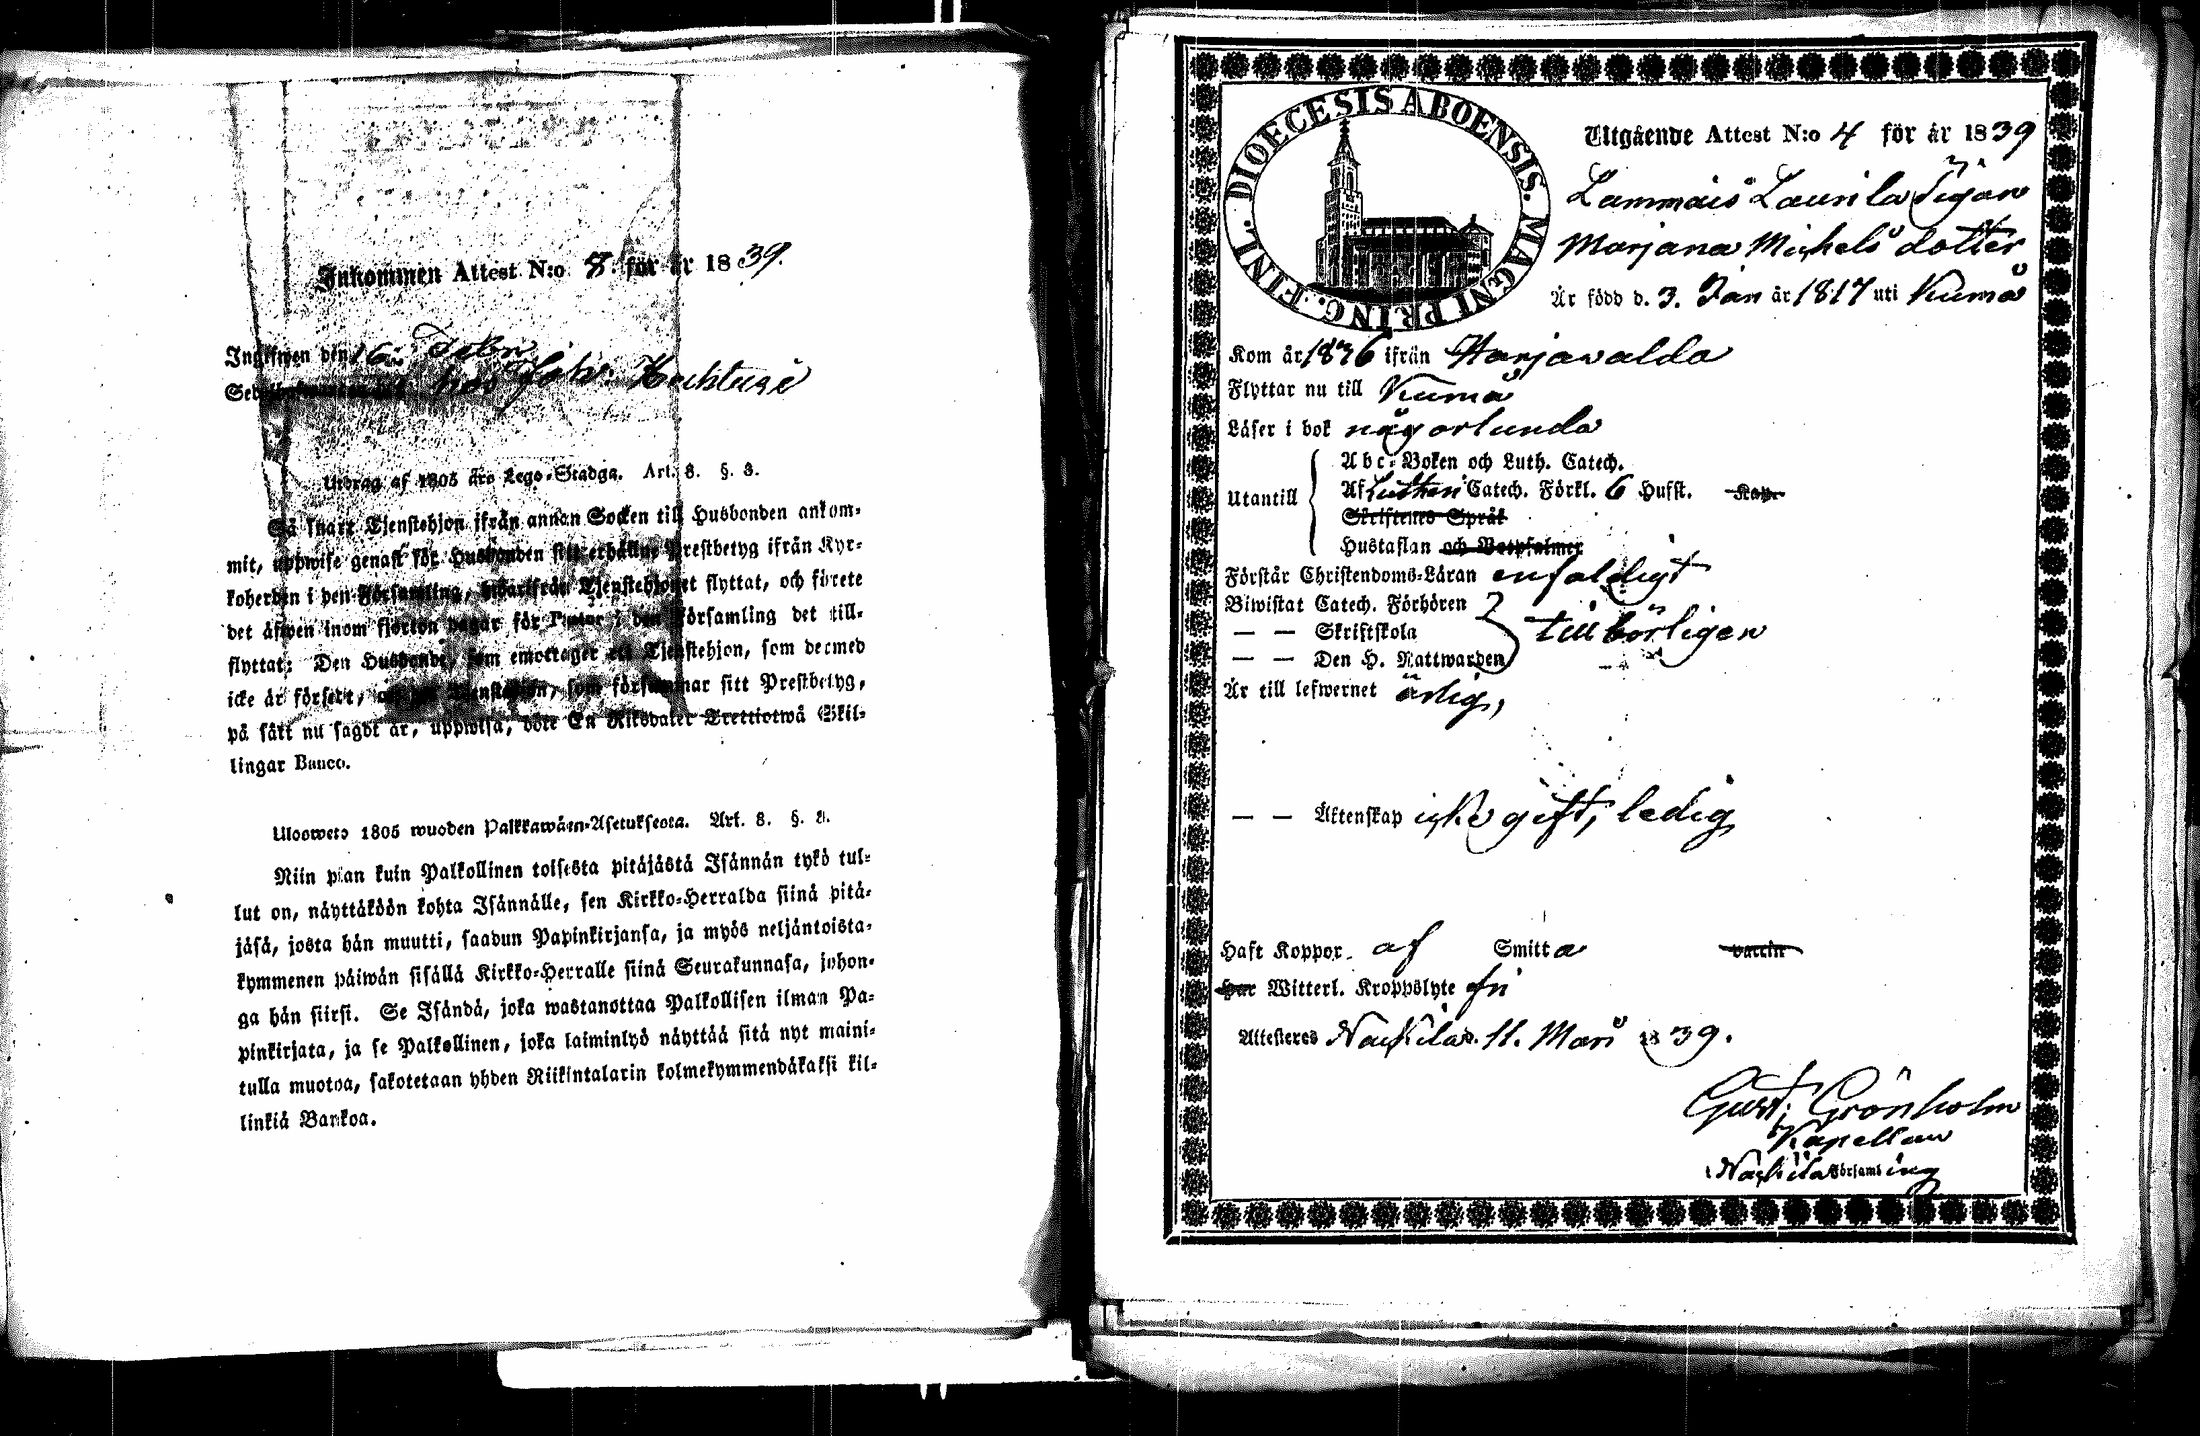 Inkommen Attest N:o 8. för år 1839.
Ingifwen den 16 Febr
hos Joh:
Utdrag af 1805 års Lego-Stadga. Art. 8. §. 8.
Så snart Tjenstehjon ifrån annan Socken till Husbonden ankom-
mit, uppwise genast för Husbonden sitt erhållne Prestbetyg ifrån Kyr-
koherden i den Församling, hwarifrån Tjenstehjonet flyttat, och förete
det äfwen inom fjorton dagar för Pastor i den Församling det till-
flyttat: Den Husbonde, som emottager ett Tjenstehjon, som dermed
icke är försedt, Tjenstehjon, som försummar sitt Prestbetyg,
på sätt nu sagdt är, uppwisa, böte En Riksdaler Trettiotwå Skil-
lingar Banco.
Ulosweto 1805 wuoden Palkkawäen-Asetuksesta. Art. 8. §. 8.
Niin pian kuin Palkollinen toisesta pitäjästä Isännän tykö tul-
lut on, näyttäköön kohta Isännälle, sen Kirkko-Herralda siinä pitä-
jäsä, josta hän muutti, saadun Papinkirjansa, ja myös neljäntoista-
kymmenen päiwän sisällä Kirkko-Herralle siinä Seurakunnasa, johon-
ga hän siirsi. Se Isändä, joka wastanottaa Palkollisen ilman Pa-
pinkirjata, ja se Palkollinen, joka laiminlyö näyttää sitä nyt maini-
tulla muotoa, sakotetaan yhden Riikintalarin kolmekymmendäkaksi kil-
linkiä Bankoa.
FINL. DIOECESIS ABOENSIS. MAGNI PRINC.
Utgående Attest N:o 4 för år 1839
Lammais Laurila Pigan
Marjana Michels dotter
Är född d. 3. Jan år 1817 uti Kumo
Kom år 1836 ifrån Harjavalda
Flyttar nu till Kumo
Läser i bok någorlunda
Utantill
Abc-Boken och Luth. Catech.
Af Lutheri Catech. Förkl. 6 Hufst. Kap.
Skriftenes Språk
Hustaflan och Botpsalmer
Förstår Christendoms-Läran enfaldigt
Biwistat Catech. Förhören
— — Skriftskola tillbörligen
— — Den H. Nattwarden
Är till lefwernet ärlig,
— — Äktenskap icke gift, ledig
Haft Koppor af Smitta vaccin
har Witterl. Kroppslyte fri
Attesteres Nackila d. 11. Mars 1839.
Gust. Grönholm
Kapellan
Nackila Församling